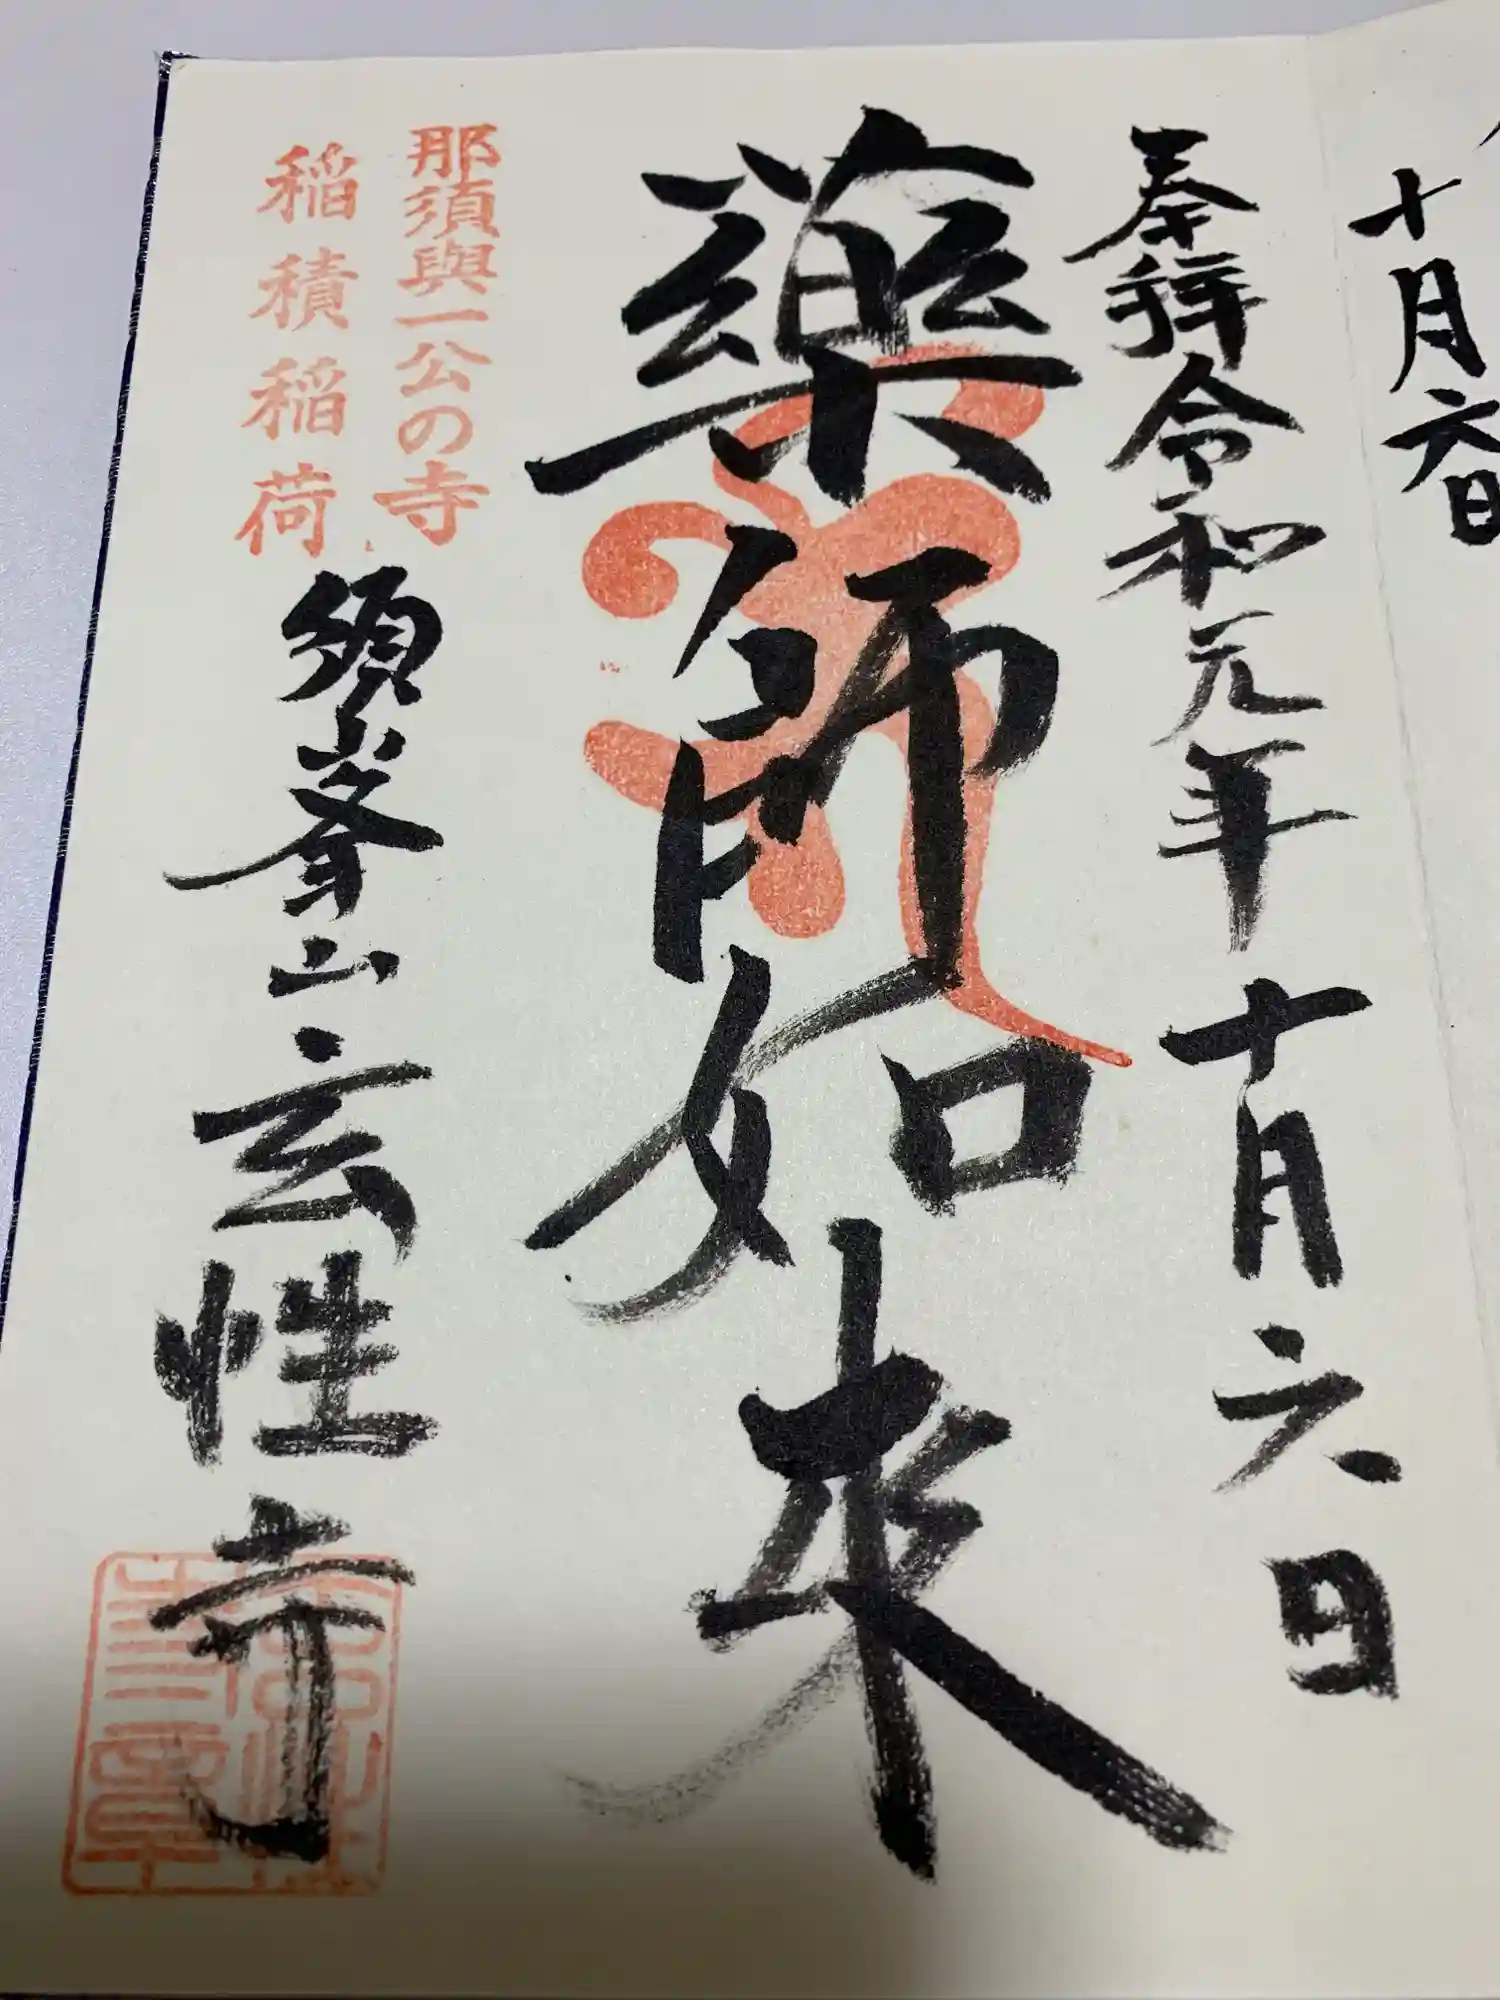 十月六日
奉拝令和元年十月六日
藥師如来
那須與一公の寺
稲積稲荷
須峯山玄性寺